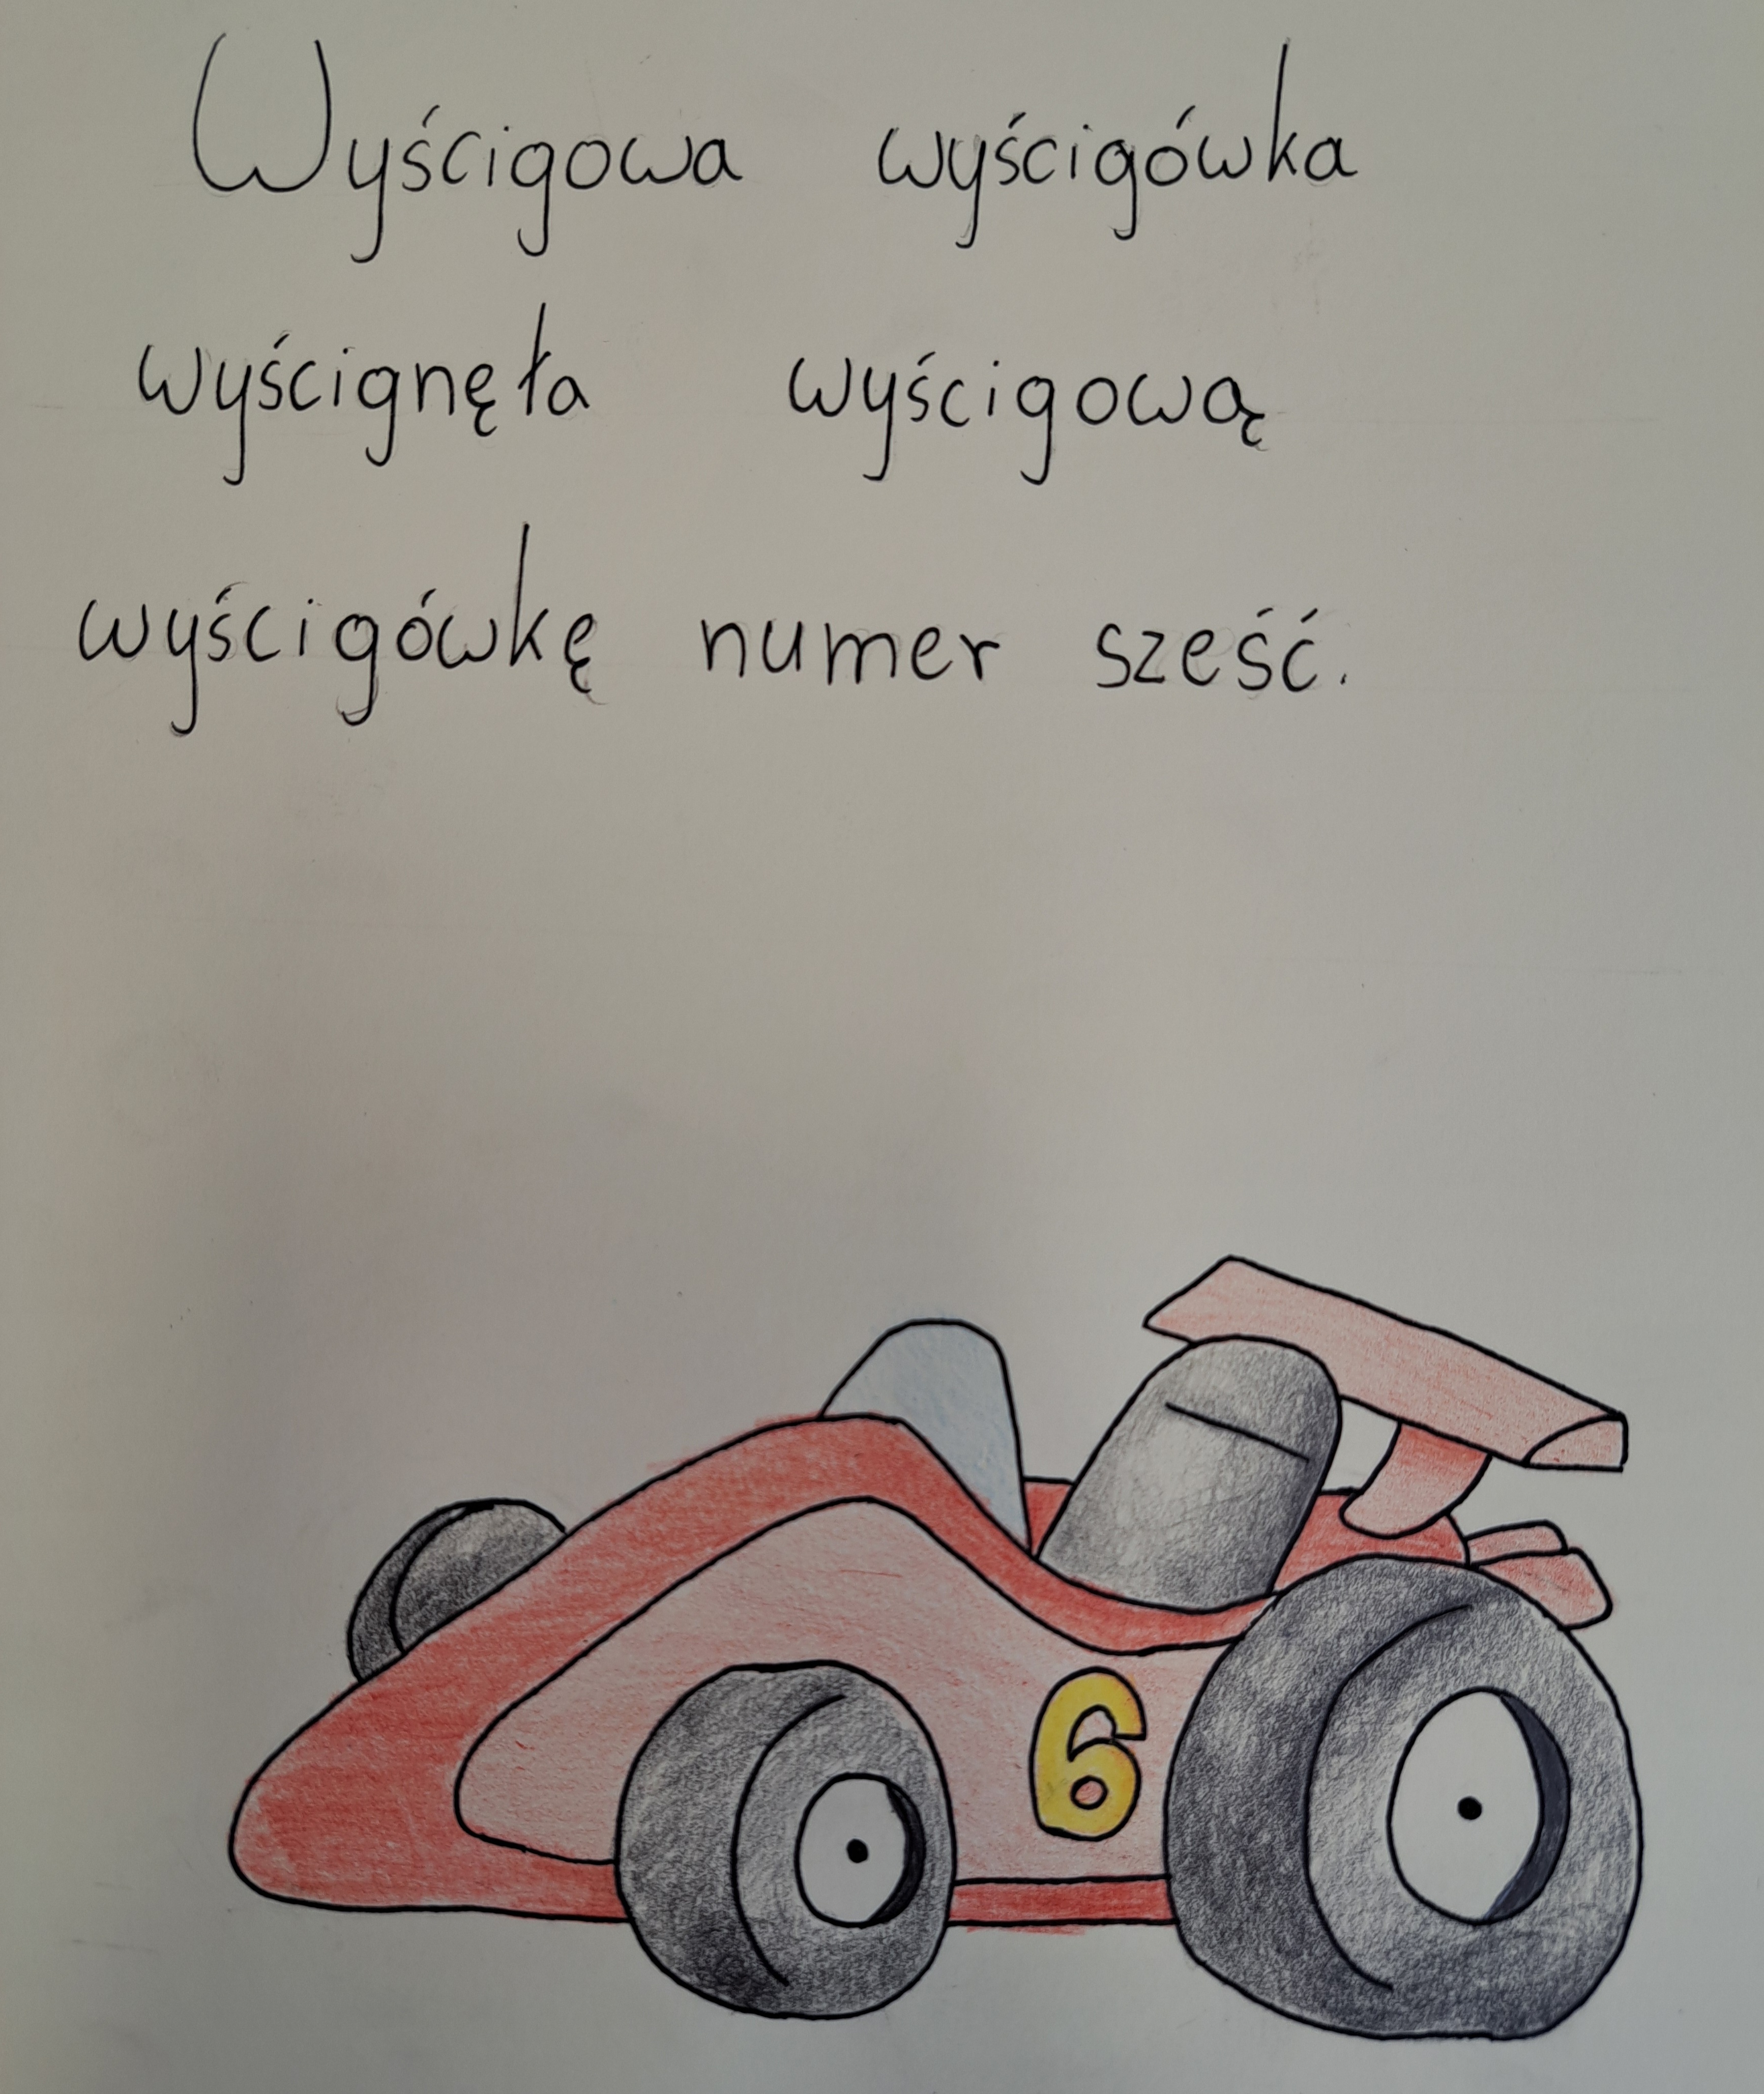 Wyścigowa wyścigówka
wyścignęła wyścigową
wyścigówkę numer sześć.
6